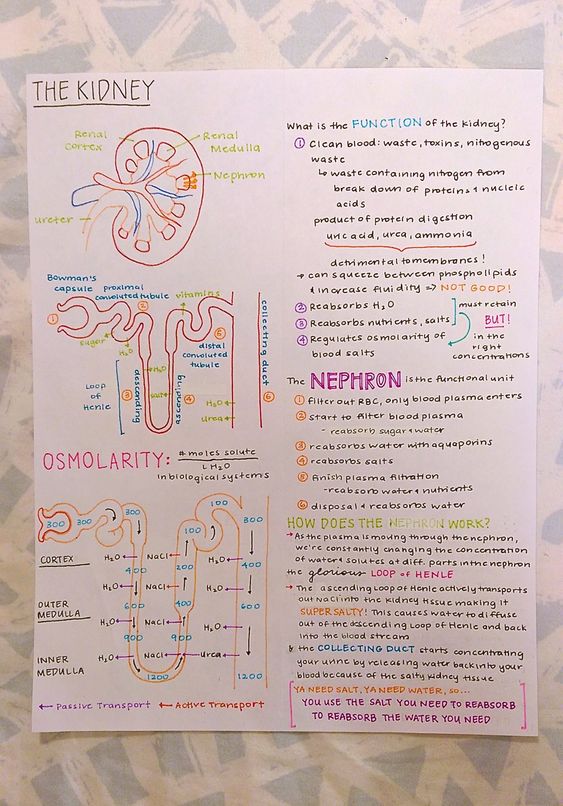 THE KIDNEY
Renal
Cortex
Renal
Medulla
Nephron
ureter
Bowman's
capsule
proximal
convoluted tubule
vitamins
①
②
sugar
H₂O
⑤
distal
convoluted
tubule
collecting duct
Loop
of
Henle
③
descending
H₂O
salt
ascending
④
H₂O
Urea
⑥
OSMOLARITY: # moles solute
L H₂O
in biological systems
300
300
300
100
100
300
CORTEX
H₂O
NaCl
400
200
H₂O
400
H₂O
NaCl
H₂O
OUTER
MEDULLA
600
400
600
H₂O
NaCl
H₂O
900
900
INNER
MEDULLA
H₂O
NaCl
Urea
1200
1200
← Passive Transport
← Active Transport
What is the FUNCTION of the kidney?
① Clean blood: waste, toxins, nitrogenous
waste
↳ waste containing nitrogen from
break down of proteins & nucleic
acids
product of protein digestion
uric acid, urea, ammonia
detrimental to membranes!
→ can squeeze between phospholipids
& increase fluidity => NOT GOOD!
② Reabsorbs H₂O
③ Reabsorbs nutrients, salts
④ Regulates osmolarity of
blood salts
must retain
BUT!
in the
right
concentrations
The NEPHRON is the functional unit
① filter out RBC, only blood plasma enters
② start to filter blood plasma
- reabsorb sugar & water
③ reabsorbs water with aquaporins
④ reabsorbs salts
⑤ finish plasma filtration
- reabsorb water & nutrients
⑥ disposal & reabsorbs water
HOW DOES THE NEPHRON WORK?
→ As the plasma is moving through the nephron,
we're constantly changing the concentration
of water & solutes at diff. parts in the nephron
the glorious LOOP OF HENLE
→ The ascending loop of Henle actively transports
out NaCl into the kidney tissue making it
SUPER SALTY! This causes water to diffuse
out of the descending Loop of Henle and back
into the blood stream
& the COLLECTING DUCT starts concentrating
your urine by releasing water back into your
blood because of the salty kidney tissue
YA NEED SALT, YA NEED WATER, SO...
YOU USE THE SALT YOU NEED TO REABSORB
TO REABSORB THE WATER YOU NEED